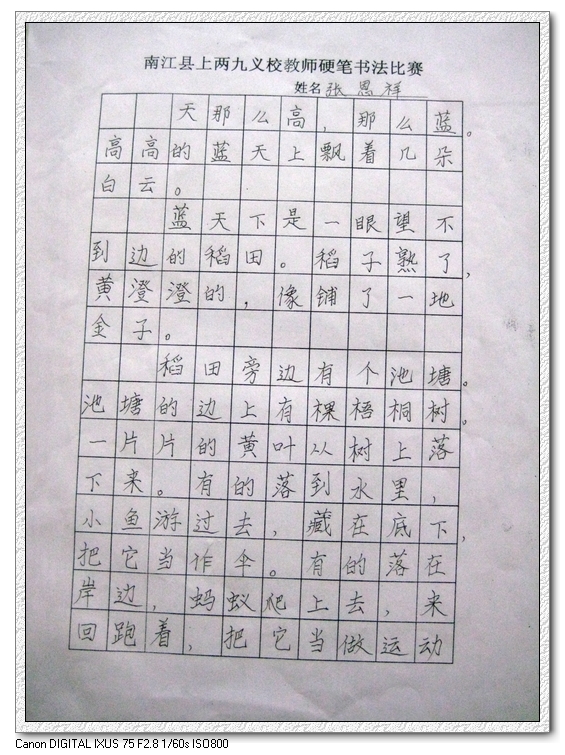 南江县上两九义校教师硬笔书法比赛
姓名 张恩祥
天那么高，那么蓝。
高高的蓝天上飘着几朵
白云。
蓝天下是一眼望不
到边的稻田。稻子熟了，
黄澄澄的，像铺了一地
金子。
稻田旁边有个池塘。
池塘的边上有棵梧桐树。
一片片的黄叶从树上落
下来。有的落到水里，
小鱼游过去，藏在底下，
把它当作伞。有的落在
岸边，蚂蚁爬上去，来
回跑着，把它当做运动
Canon DIGITAL IXUS 75 F2.8 1/60s ISO800